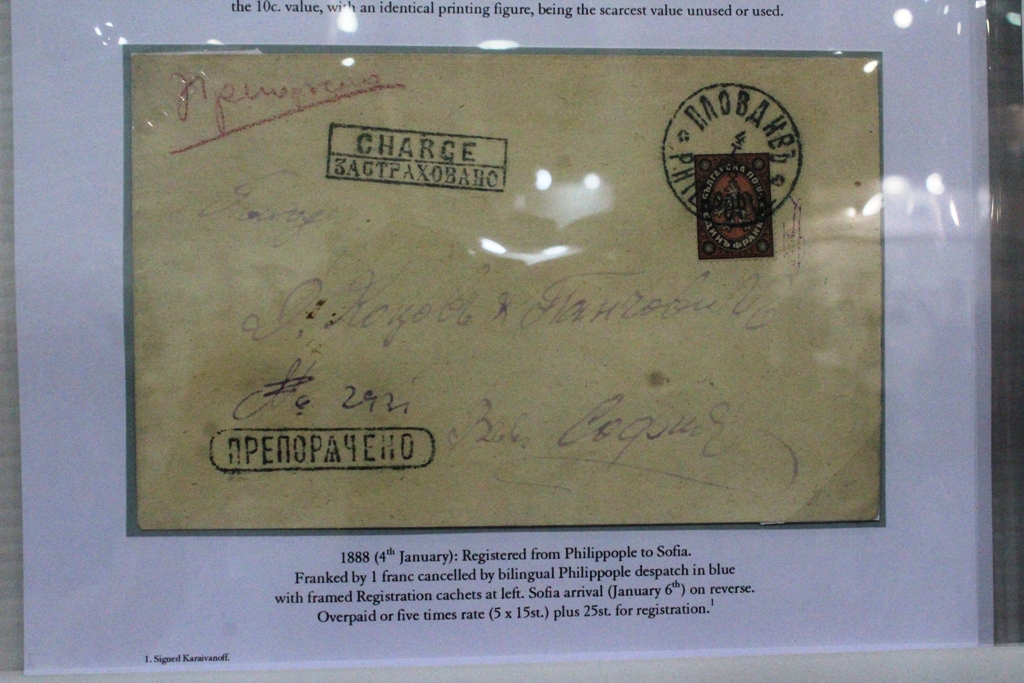 the 10c. value, with an identical printing figure, being the scarcest value unused or used.
CHARGE
ЗАСТРАХОВАНО
ПЛОВДИВЪ
ЕДИНЪ ФРАНКЪ
№ 2421
ПРЕПОРѪЧЕНО
София
1888 (4th January): Registered from Philippople to Sofia.
Franked by 1 franc cancelled by bilingual Philippople despatch in blue
with framed Registration cachets at left. Sofia arrival (January 6th) on reverse.
Overpaid or five times rate (5 x 15st.) plus 25st. for registration.1
1. Signed Karaivanoff.